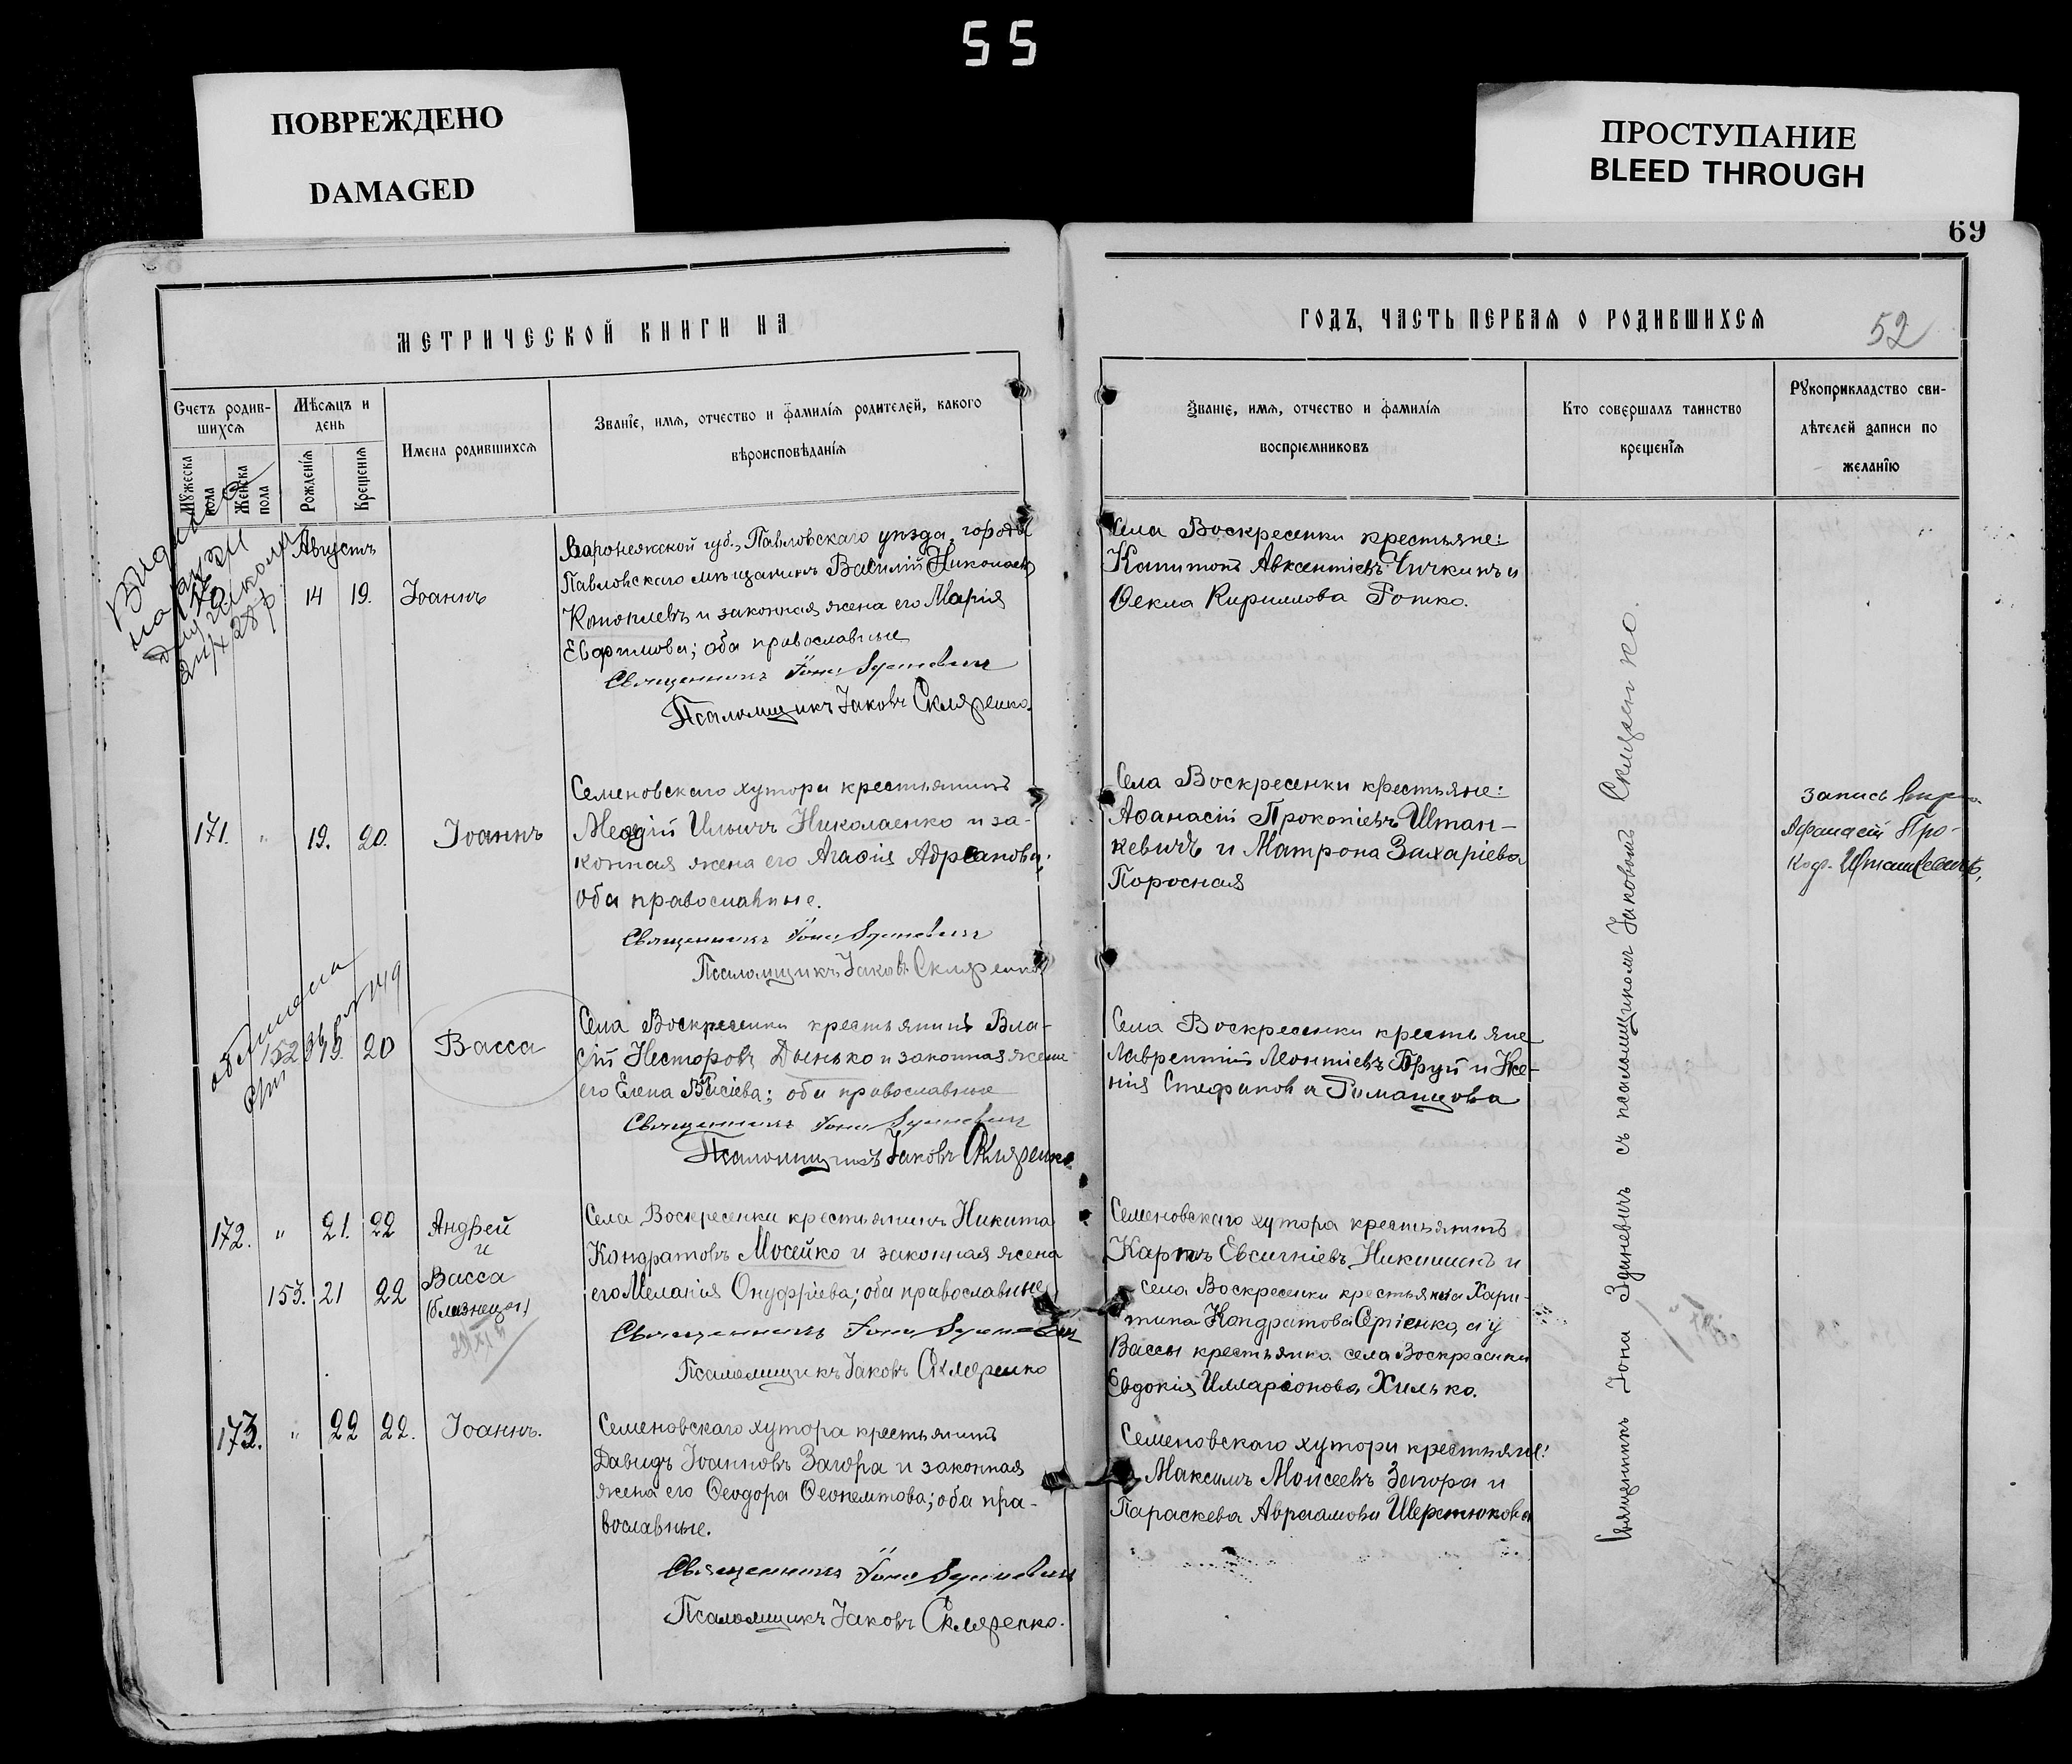 55
ПОВРЕЖДЕНО
DAMAGED
ПРОСТУПАНИЕ
BLEED THROUGH
69
МЕТРИЧЕСКОЙ КНИГИ НА
ГОДЪ, ЧАСТЬ ПЕРВАЯ О РОДИВШИХСЯ
52
Счетъ родив-
шихся
Мѣсяцъ и
день
Имена родившихся
Званіе, имя, отчество и фамилія родителей, какого
вѣроисповѣданія
Мужеска
пола
Женска
пола
Рожденія
Крещенія
Званіе, имя, отчество и фамилія
воспріемниковъ
Кто совершалъ таинство
крещенія
Рукоприкладство сви-
дѣтелей записи по
желанію
Августъ
14 19. Іоаннъ
Воронежской губ., Павловскаго уѣзда, города
Павловскаго мѣщанинъ Василій Николаевъ
Коноплевъ и законная жена его Марія
Евфимова; оба православные
Священникъ Іона
Псаломщикъ Іаковъ Скляренко.
Села Воскресенки крестьяне:
Капитонъ Авксентіевъ Чичкинъ и
Ѳекла Кириллова
171. " 19. 20. Іоаннъ
Семеновскаго хутора крестьянинъ
Меѳодій Ильичъ Николаенко и за-
конная жена его Агаѳія
оба православные.
Священникъ Іона
Псаломщикъ Іаковъ Скляренко
Села Воскресенки крестьяне:
Аѳанасій Прокопіевъ Штан-
кевичъ и Матрона Захаріева
Поросная
запись
Афанасій Про-
152 19. 20 Васса
Села Воскресенки крестьянинъ Вла-
сій Несторовъ Дынько и законная жена
его Елена; оба православные
Священникъ Іона
Псаломщикъ Іаковъ Скляренко
Села Воскресенки крестьяне
Лаврентій Леонтіевъ и Ксе-
нія Стефанова Романцова
172. " 21. 22 Андрей
и
153. 21 22 Васса
(близнецы)
Села Воскресенки крестьянинъ Никита
Кондратовъ Мосейко и законная жена
его Меланія Онуфріева; оба православные
Священникъ Іона
Псаломщикъ Іаковъ Скляренко
Семеновскаго хутора крестьянинъ
Карпъ Евсигніевъ Никишинъ и
села Воскресенки крестьянка Хари-
тина Кондратова Сергіенко, а у
Вассы крестьянка села Воскресенки
Евдокія Илларіонова Хилько.
173. " 22 22. Іоаннъ.
Семеновскаго хутора крестьянинъ
Давидъ Іоанновъ Загора и законная
жена его Ѳеодора Ѳеопемптова; оба пра-
вославные.
Священникъ Іона
Псаломщикъ Іаковъ Скляренко.
Семеновскаго хутора крестьяне:
Максимъ Моисеевъ Загора и
Параскева Авраамова Шерстюкова
Священникъ Іона съ псаломщикомъ Іаковомъ Скляренко.